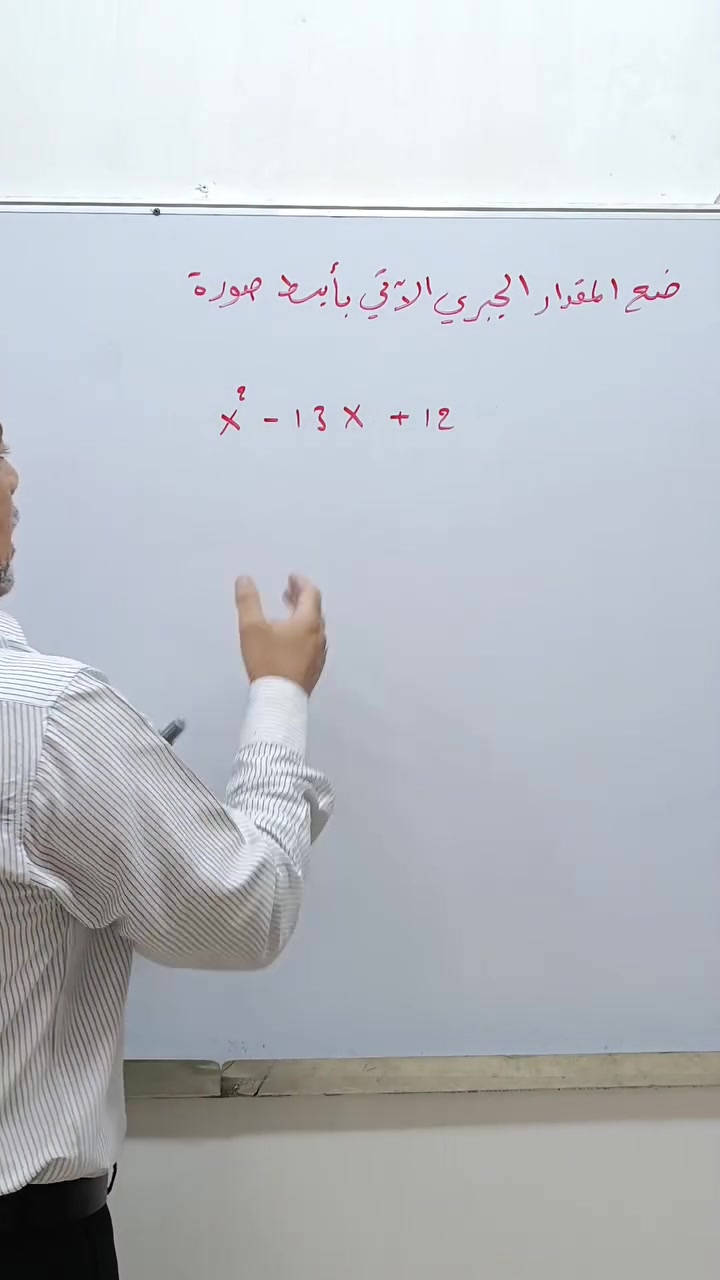 ضع المقدار الجبري الآتي بأبسط صورة
x² - 13x + 12